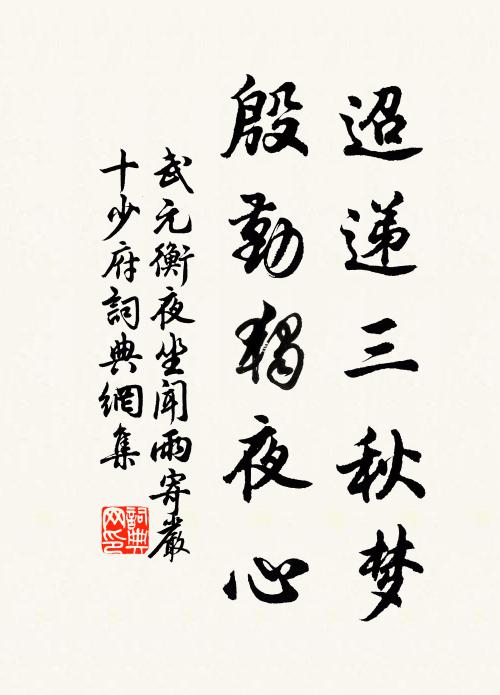 迢递三秋梦
殷勤独夜心
武元衡夜坐聞雨寄嚴
十少府詞典網集
詞典
网印